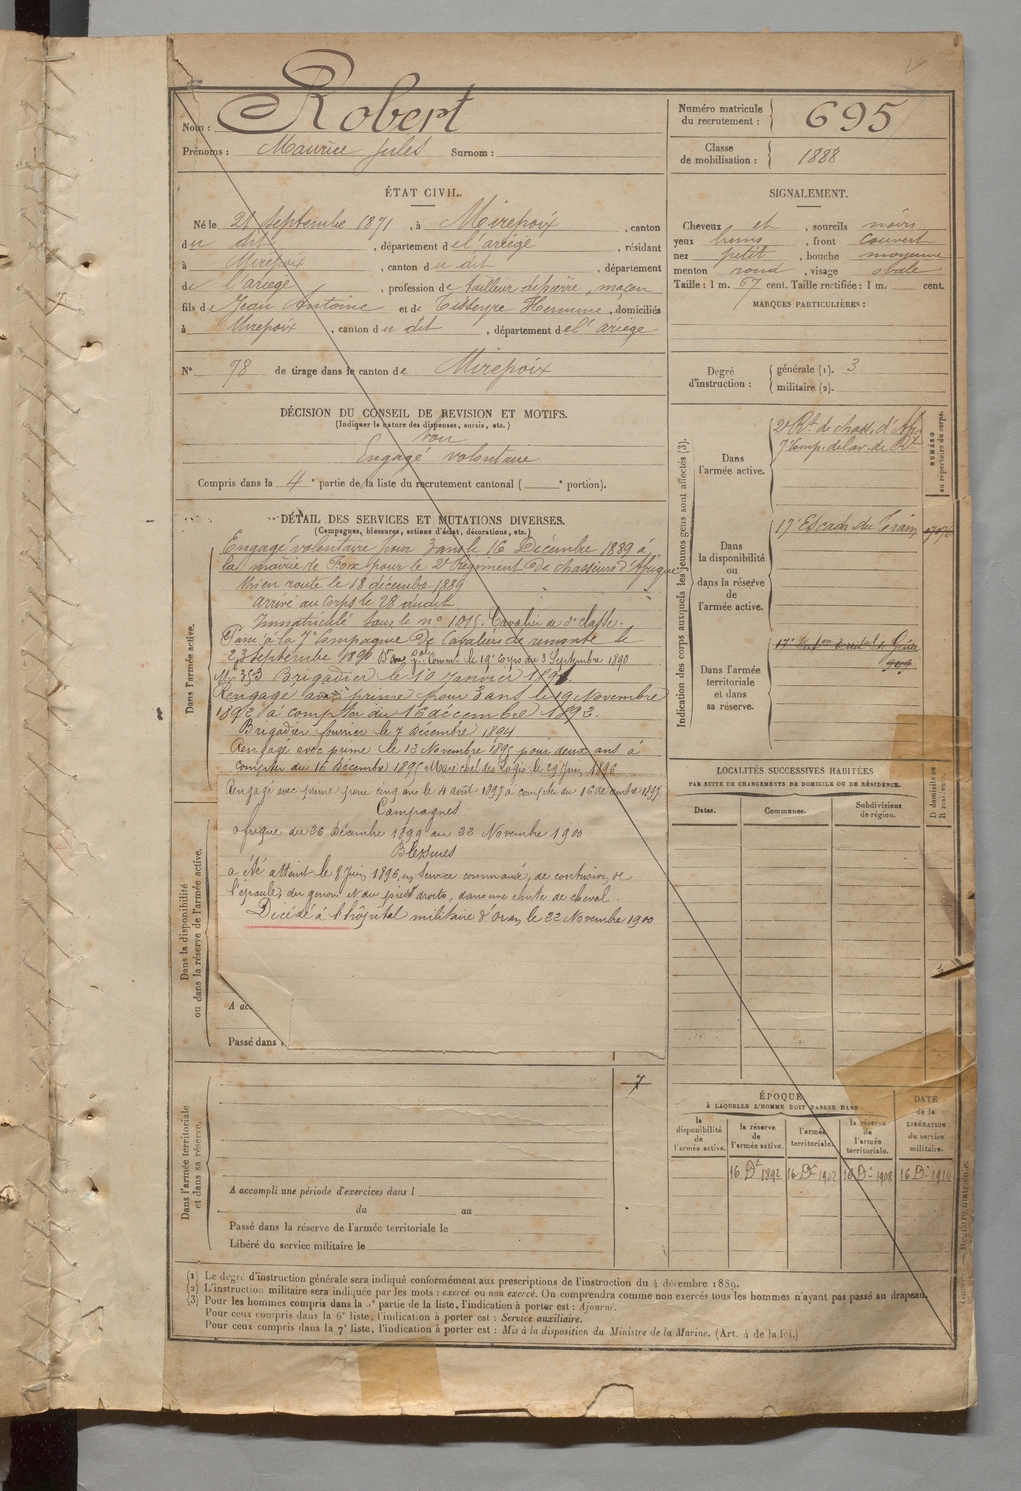 Nom : Robert
Prénoms : Maurice Jules Surnom :
Numéro matricule
du recrutement : 695
Classe
de mobilisation : 1888
ÉTAT CIVIL.
Né le septembre 1871, à Mirepoix, canton
du dit, département de l'ariége, résidant
à Mirepoix, canton du dit, département
de l'ariége, profession de tailleur de pierre, maçon
fils de Jean Antoine et de Tisseyre Hermine, domiciliés
à Mirepoix, canton du dit, département de l'ariége
N° 78 de tirage dans le canton de Mirepoix
SIGNALEMENT.
Cheveux et, sourcils noirs
yeux bruns, front couvert
nez petit, bouche moyenne
menton rond, visage ovale
Taille : 1 m. 67 cent. Taille rectifiée : 1 m. cent.
MARQUES PARTICULIÈRES :
Degré
d'instruction :
générale (1). 3
militaire (2).
DÉCISION DU CONSEIL DE REVISION ET MOTIFS.
(Indiquer la nature des dispenses, sursis, etc.)
bon
Engagé volontaire
Compris dans la 4e partie de la liste du recrutement cantonal ( e portion).
DÉTAIL DES SERVICES ET MUTATIONS DIVERSES.
(Campagnes, blessures, actions d'éclat, décorations, etc.)
Dans l'armée active.
Engagé volontaire pour 3 ans le 16 Décembre 1889 à
la mairie de Foix pour le 2e Régiment de chasseurs d'Afrique
Mis en route le 18 décembre 1889
arrivé au corps le 28 dudit
Immatriculé sous le n° 1015. Cavalier de 2e classe.
Passé à la 7e Compagnie de Cavaliers de remonte le
23 Septembre 1890 le 19e Corps du 3 Septembre 1890
Mle 353 Brigadier le 10 Janvier
Rengagé avec prime pour 3 ans le 19 Novembre
1892 à compter du 16 décembre 1892.
Brigadier fourrier le 7 Décembre 1894
Rengagé avec prime le 13 Novembre 1895 pour deux ans à
compter du 16 Décembre 1895 Maréchal des Logis le 29 Juin 1896
Rengagé avec prime pour cinq ans le 4 août 1897 à compter du 16 décembre 1897
Campagnes
afrique du 26 Décembre 1899 au 22 Novembre 1900
Blessures
a été atteint le 8 Juin 1896, en service commandé, de contusion de
l'épaule, du genou et du pied droits, dans une chute de cheval.
Décédé à l'hôpital militaire d'Oran le 22 Novembre 1900
Dans la disponibilité
ou dans la réserve de l'armée active.
A ac
Passé dans
Dans l'armée territoriale
et dans sa réserve.
A accompli une période d'exercices dans l
du au
Passé dans la réserve de l'armée territoriale le
Libéré du service militaire le
Indication des corps auxquels les jeunes gens sont affectés (3).
Dans
l'armée active.
2e Rt de chass. d'Af.
7e Comp. de cav. de Rte
NUMÉRO
au répertoire du corps.
Dans
la disponibilité
ou
dans la réserve
de
l'armée active.
17e Escadr. du Train
Dans l'armée
territoriale
et dans
sa réserve.
LOCALITÉS SUCCESSIVES HABITÉES
PAR SUITE DE CHANGEMENTS DE DOMICILE OU DE RÉSIDENCE.
Dates.
Communes.
Subdivisions
de région.
ÉPOQUE
À LAQUELLE L'HOMME DOIT PASSER DANS
la
disponibilité
de
l'armée active.
la réserve
de
l'armée active.
l'armée
territoriale.
la réserve
de
l'armée
territoriale.
DATE
de la
LIBÉRATION
du service
militaire.
16 Dre 1892
16 Dre 1902
16 Dre 1908
(1) Le degré d'instruction générale sera indiqué conformément aux prescriptions de l'instruction du 4 décembre 1889.
(2) L'instruction militaire sera indiquée par les mots : exercé ou non exercé. On comprendra comme non exercés tous les hommes n'ayant pas passé au drapeau.
(3) Pour les hommes compris dans la 5e partie de la liste, l'indication à porter est : Ajourné.
Pour ceux compris dans la 6e liste, l'indication à porter est : Service auxiliaire.
Pour ceux compris dans la 7e liste, l'indication à porter est : Mis à la disposition du Ministre de la Marine. (Art. 4 de la loi.)